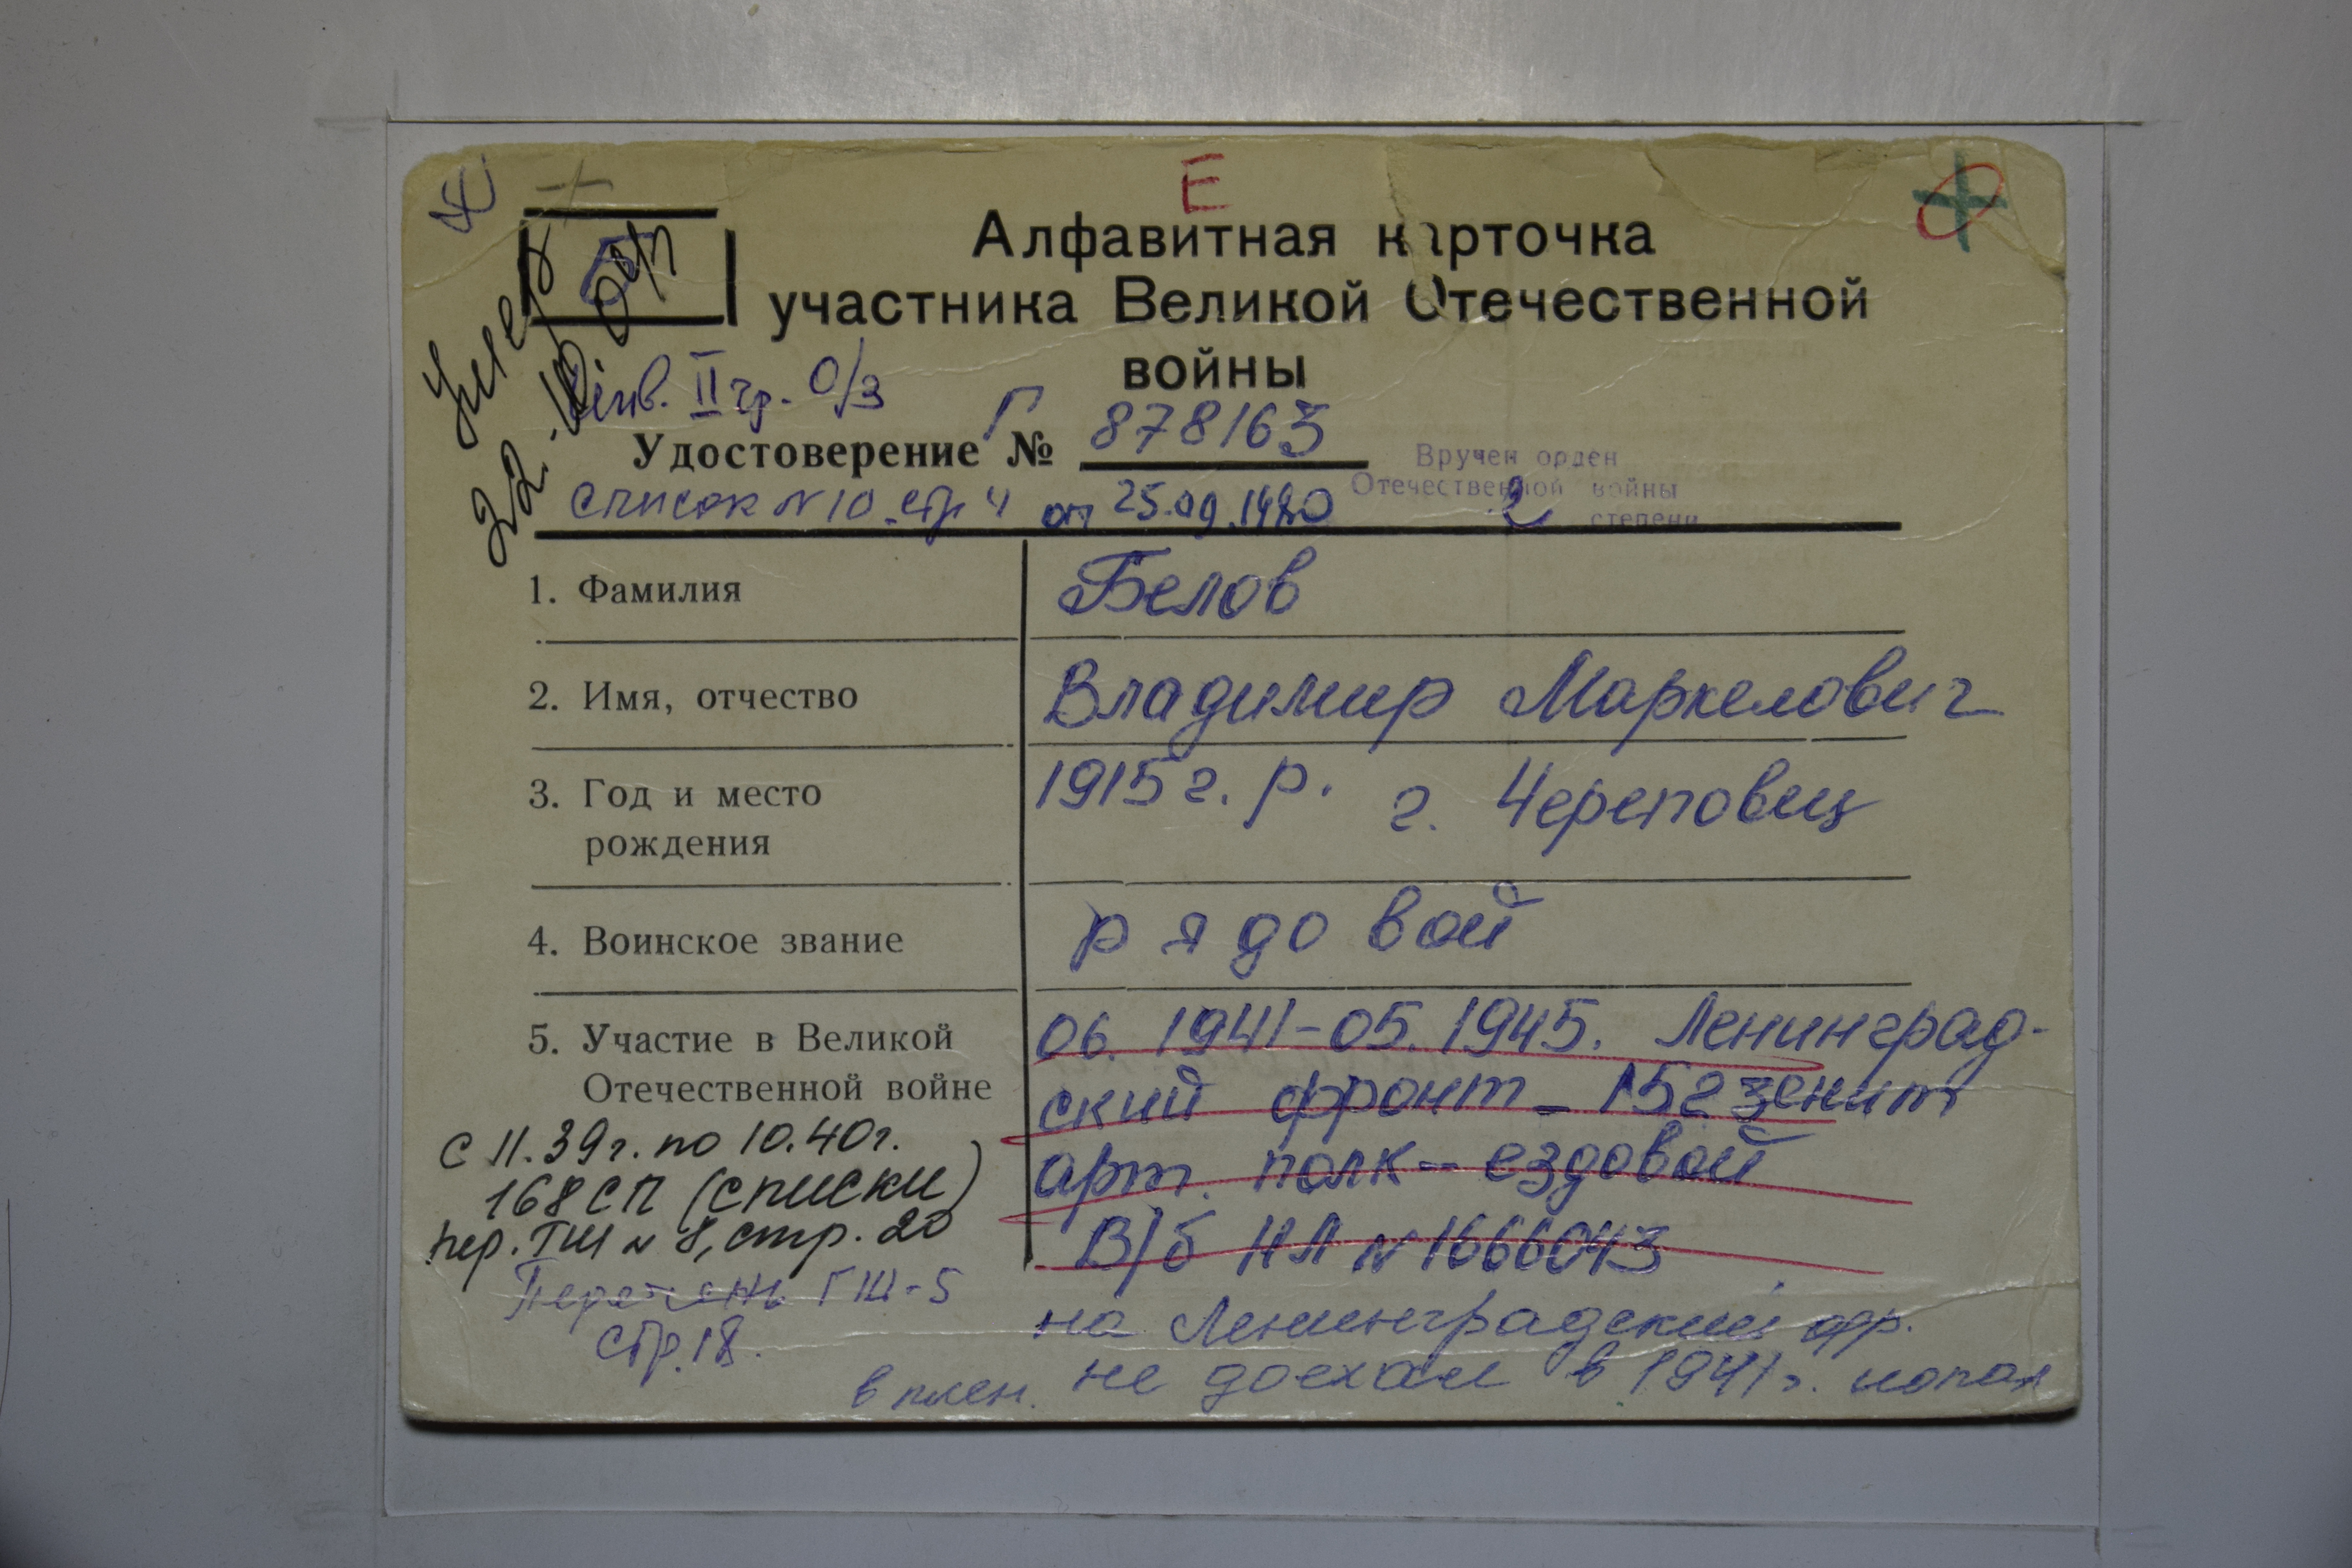 Е
Алфавитная карточка
участника Великой Отечественной
войны
Умер
инв. II гр. О/З
Удостоверение № Г 878163
Вручен орден
Отечественной войны
2 степени
список N 10 стр 4 от 25.09.1980
1. Фамилия Белов
2. Имя, отчество Владимир Маркелович
3. Год и место рождения 1915 г. р. г. Череповец
4. Воинское звание рядовой
5. Участие в Великой
Отечественной войне
06. 1941-05.1945. Ленинград-
ский фронт - 152 зенит
арт. полк - ездовой
В/б НЛ N 1666043
с 11.39г. по 10.40г.
168 СП (списки)
пер. ГШ N 8, стр. 20
Перечень ГШ-5
стр. 18.
на Ленинградский фр.
не доехал в 1941 г. попал
в плен.